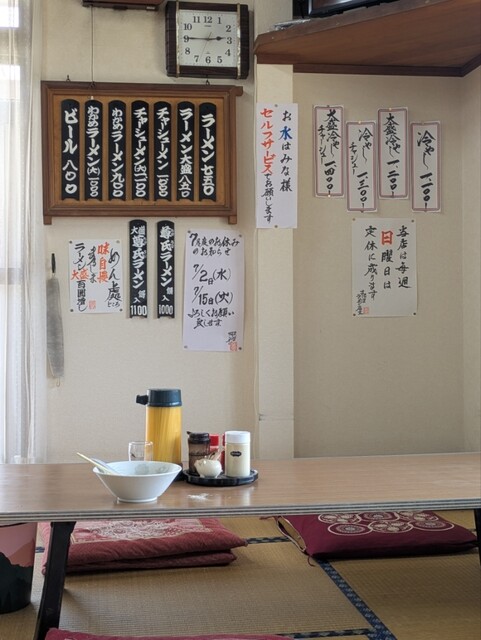 ラーメン 七五〇
ラーメン大盛 八五〇
チャーシューメン 一〇〇〇
チャーシューメン(大) 一一〇〇
わかめラーメン 九〇〇
わかめラーメン(大) 一〇〇〇
ビール 八〇〇
お水はみな様
セルフサービスでお願いします
冷やし 一、一〇〇
大盛冷やし 一、二〇〇
冷やし
チャーシュー 一、三〇〇
大盛冷やし
チャーシュー 一四〇〇
当店は毎週
日曜日は
定休に成ります
7月度のお休み
のお知らせ
7/2日(水)
7/15日(火)
よろしくお願い
致します
ラーメン 入 1000
大盛
ラーメン 入 1100
めん處
味自慢
ラーメン大盛
12
1
2
3
4
5
6
7
8
9
10
11